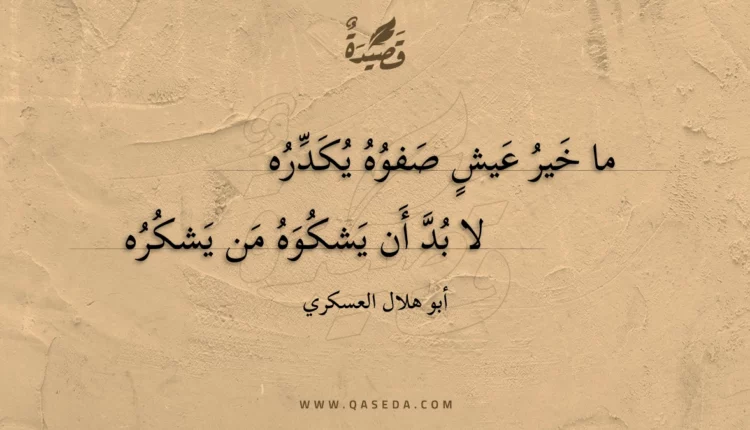 قَصِيْدَةٌ
ما خَيرُ عَيشٍ صَفوُهُ يُكَدِّرُه
لا بُدَّ أَن يَشكُوَهُ مَن يَشكُرُه
أبو هلال العسكري
WWW.QASEDA.COM